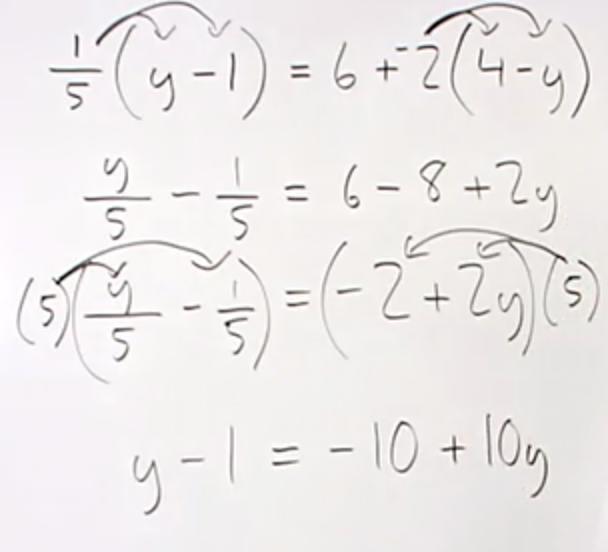 1/5 (y - 1) = 6 + -2(4 - y)
y/5 - 1/5 = 6 - 8 + 2y
(5)(y/5 - 1/5) = (-2 + 2y)(5)
y - 1 = -10 + 10y